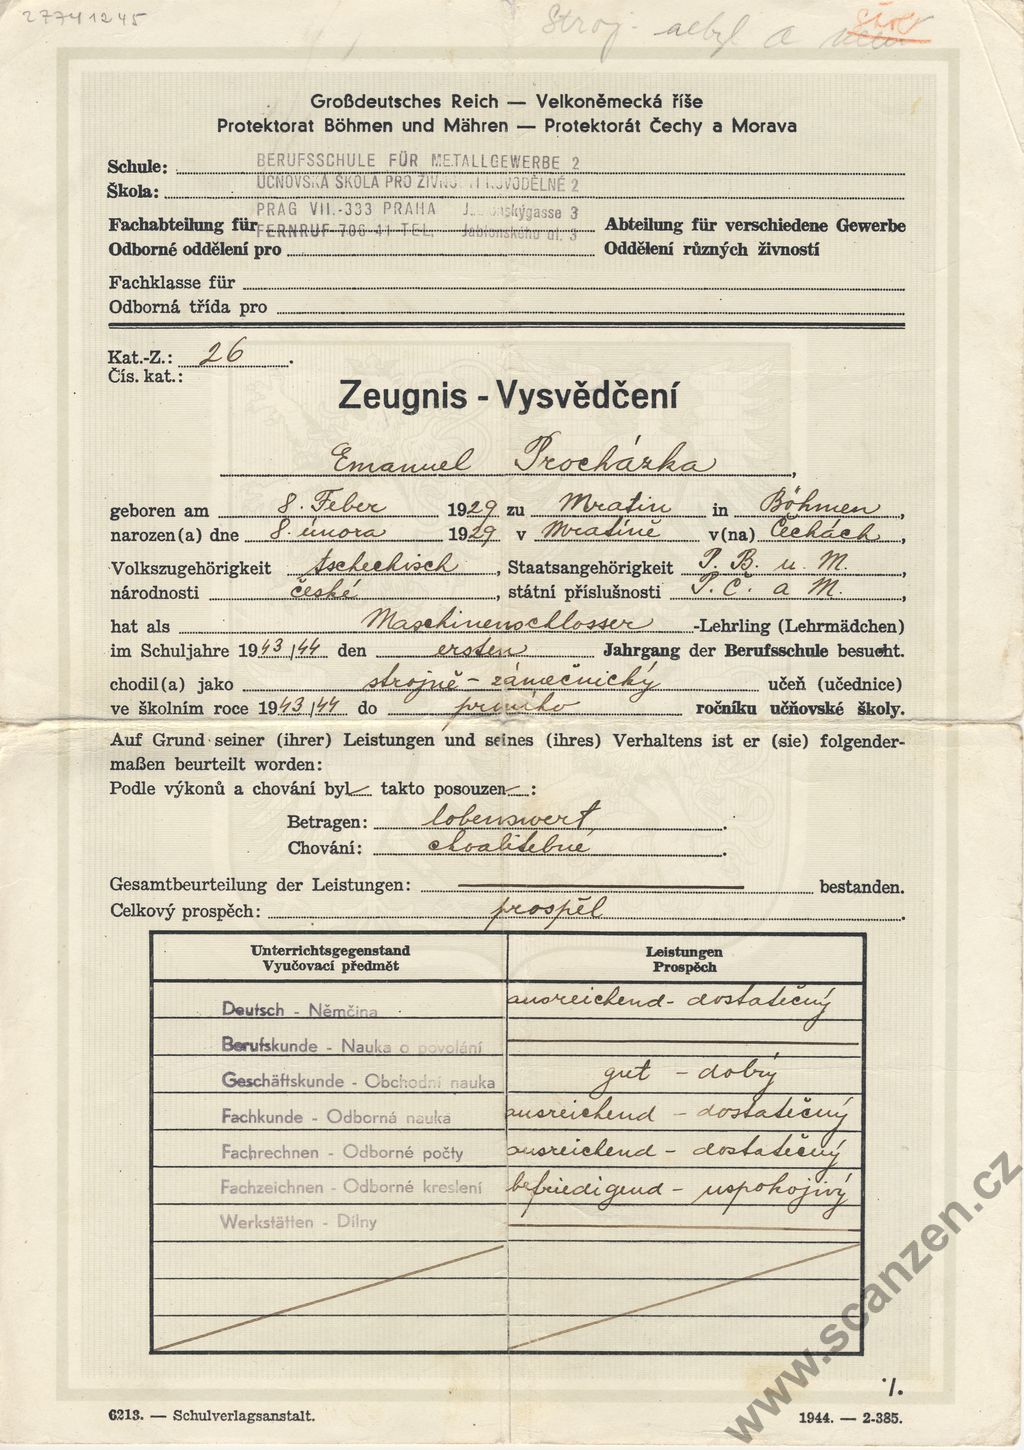 27741245
Stroj. nebyl a
Großdeutsches Reich — Velkoněmecká říše
Protektorat Böhmen und Mähren — Protektorát Čechy a Morava
Schule: BERUFSSCHULE FÜR METALLGEWERBE 2
Škola: UČNOVSKÁ ŠKOLA PRO ŽIVNOSTI KOVODĚLNÉ 2
PRAG VII.-333 PRAHA Jablonskýgasse 3
Fachabteilung für FERNRUF 706-41 TEL. Jablonského ul. 3 Abteilung für verschiedene Gewerbe
Odborné oddělení pro Oddělení různých živností
Fachklasse für
Odborná třída pro
Kat.-Z.: 26.
Čís. kat.:
Zeugnis - Vysvědčení
Emanuel Procházka,
geboren am 8. Feber 1929 zu Mratin in Böhmen,
narozen(a) dne 8. února 1929 v Mratíně v(na) Čechách,
Volkszugehörigkeit tschechisch, Staatsangehörigkeit P. B. u. M.,
národnosti české, státní příslušnosti P. Č. a M.,
hat als Maschinenschlosser -Lehrling (Lehrmädchen)
im Schuljahre 1943/44 den ersten Jahrgang der Berufsschule besucht.
chodil(a) jako strojně-zámečnický učeň (učednice)
ve školním roce 1943/44 do prvního ročníku učňovské školy.
Auf Grund seiner (ihrer) Leistungen und seines (ihres) Verhaltens ist er (sie) folgender-
maßen beurteilt worden:
Podle výkonů a chování byl takto posouzen :
Betragen: lobenswert.
Chování: chvalitebné.
Gesamtbeurteilung der Leistungen: bestanden.
Celkový prospěch: prospěl.
Unterrichtsgegenstand Leistungen
Vyučovací předmět Prospěch
Deutsch - Němčina ausreichend - dostatečný
Berufskunde - Nauka o povolání
Geschäftskunde - Obchodní nauka gut - dobrý
Fachkunde - Odborná nauka ausreichend - dostatečný
Fachrechnen - Odborné počty ausreichend - dostatečný
Fachzeichnen - Odborné kreslení befriedigend - uspokojivý
Werkstätten - Dílny
·/.
6213. — Schulverlagsanstalt. 1944. — 2-385.
www.scanzen.cz